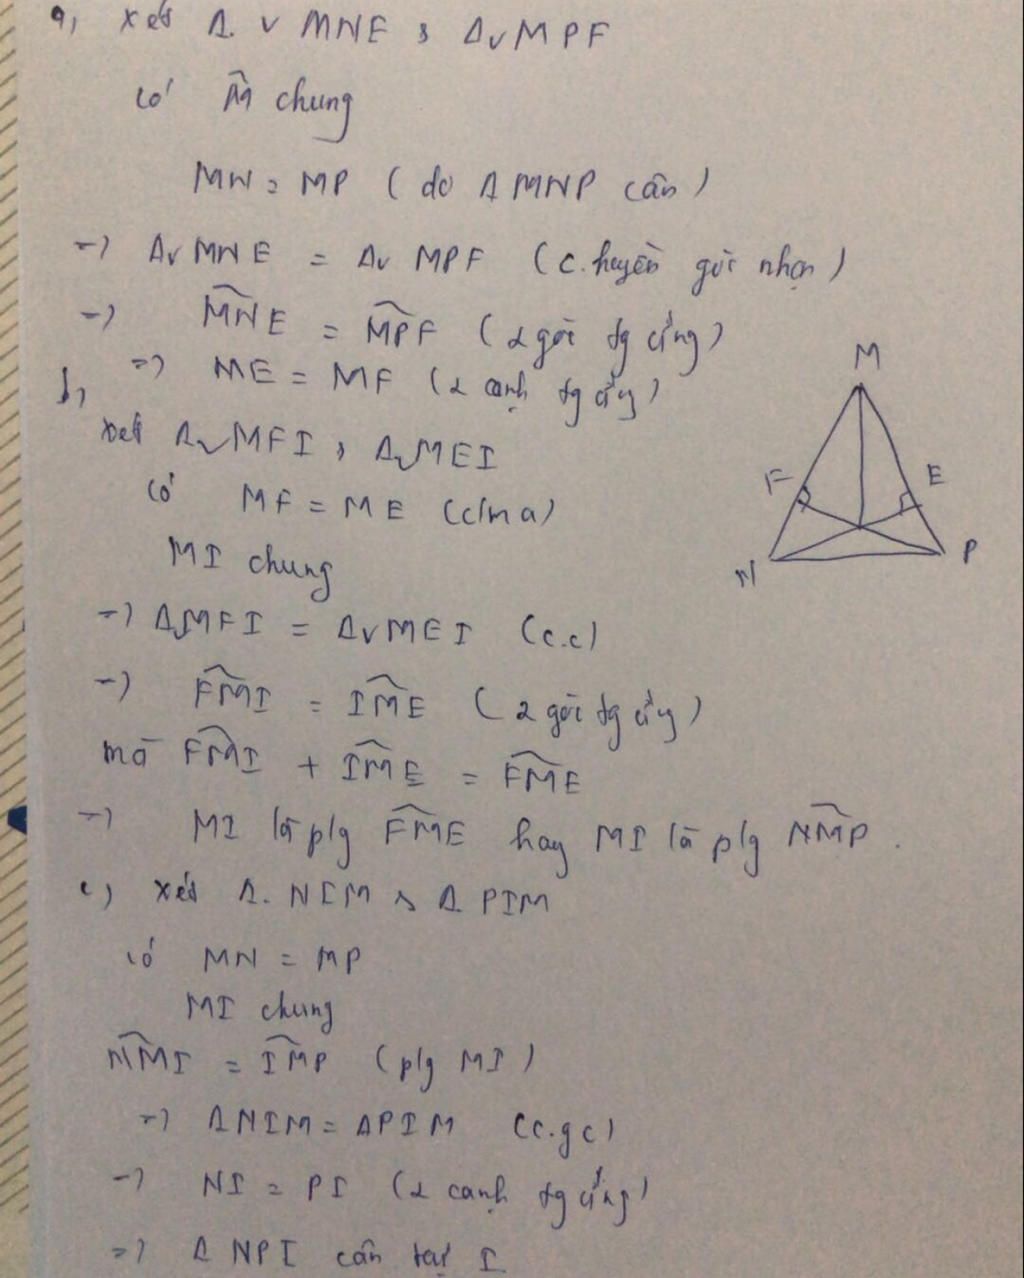 a, xét Δ. v MNE & Δv MPF
có M̂ chung
MN = MP ( do Δ MNP cân )
=> Δv MNE = Δv MPF ( c. huyền góc nhọn )
=> \widehat{MNE} = \widehat{MPF} ( 2 góc tg ứng )
=> ME = MF ( 2 cạnh tg ứng )
b,
xét Δv MFI & Δv MEI
có MF = ME (c/m a)
MI chung
=> Δv MFI = Δv MEI (c.c)
=> \widehat{FMI} = \widehat{IME} ( 2 góc tg ứng )
mà \widehat{FMI} + \widehat{IME} = \widehat{FME}
=> MI là p/g \widehat{FME} hay MI là p/g \widehat{NMP} .
c) xét Δ. NIM & Δ PIM
có MN = MP
MI chung
\widehat{NMI} = \widehat{IMP} ( p/g MI )
=> Δ NIM = Δ PIM (c.g c)
=> NI = PI ( 2 cạnh tg ứng )
=> Δ NPI cân tại I
M
F
E
N
P